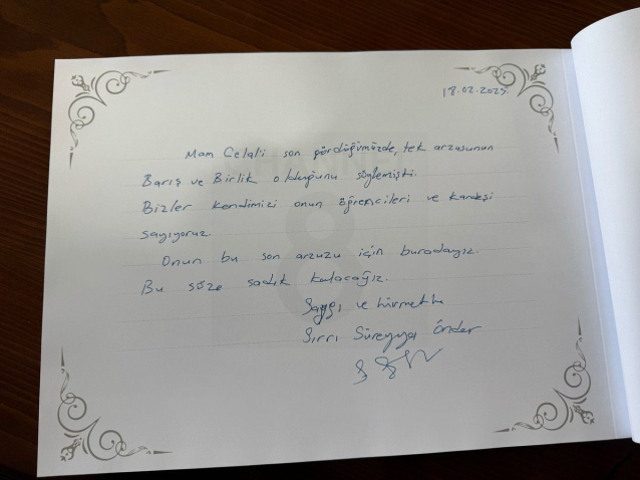 18.02.2025
Mam Celal'i son gördüğümüzde, tek arzusunun
Barış ve Birlik olduğunu söylemişti.
Bizler kendimizi onun öğrencileri ve kardeşi
sayıyoruz.
Onun bu son arzuzu için buradayız.
Bu söze sadık kalacağız.
Saygı ve hürmetle
Sırrı Süreyya Önder